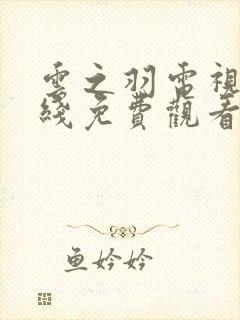 雲之羽電視
綫免費觀看
鱼妗妗